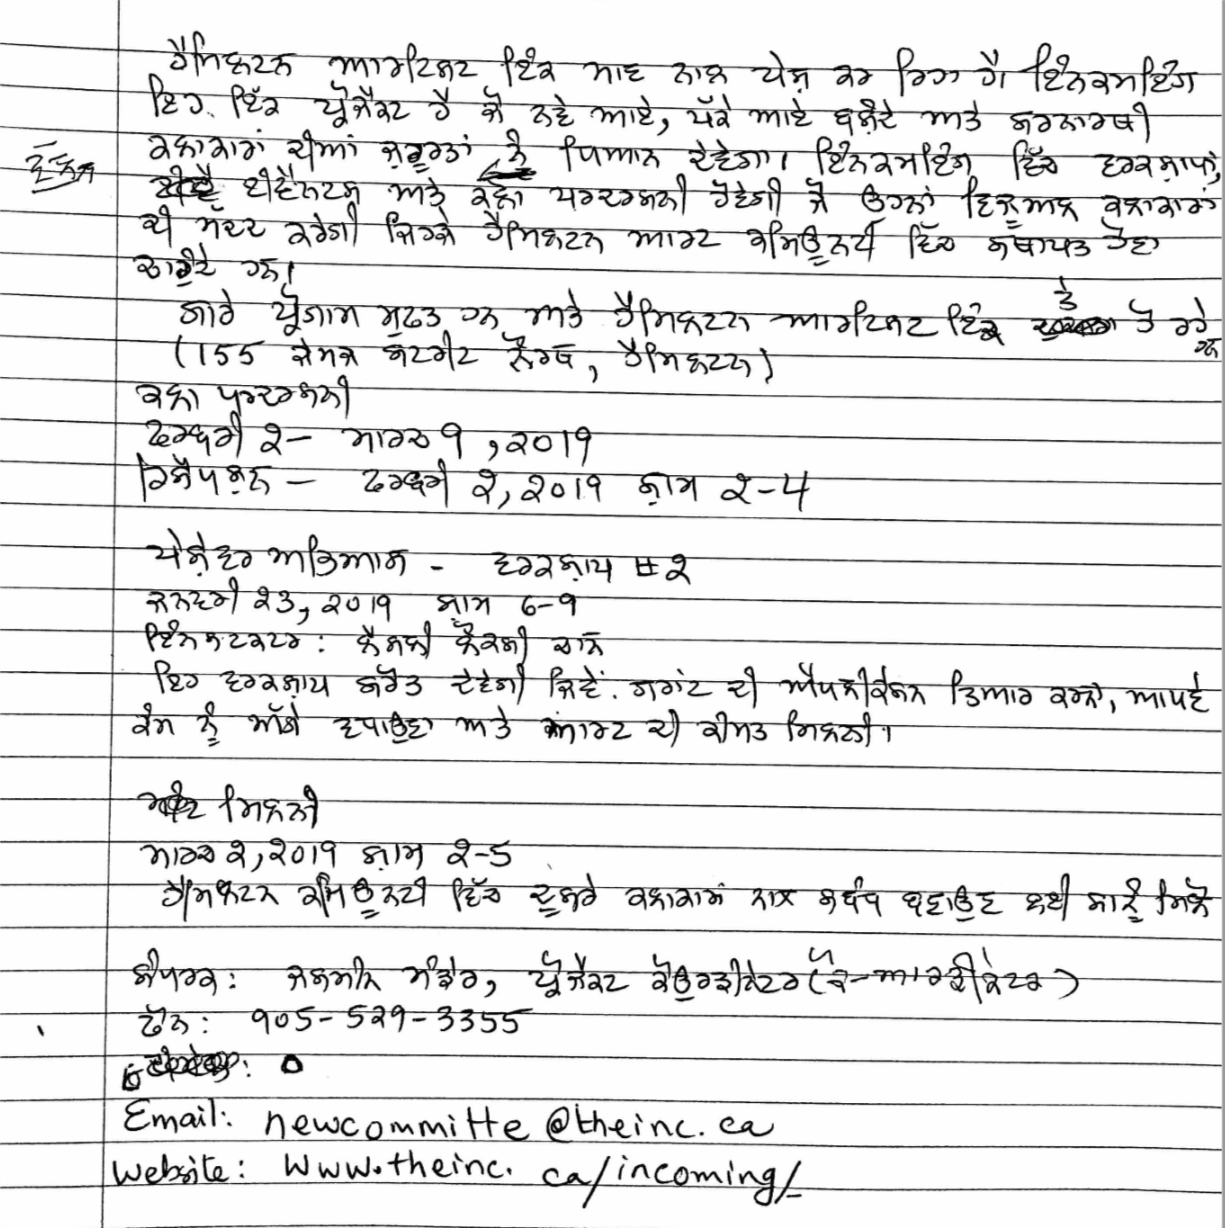 ਹੈਮਿਲਟਨ ਆਰਟਿਸਟ ਇੰਕ ਮਾਣ ਨਾਲ ਪੇਸ਼ ਕਰ ਰਿਹਾ ਹੈ। ਇੰਨਕਮਇੰਗ
ਇਹ ਇੱਕ ਪ੍ਰੋਜੈਕਟ ਹੈ ਜੋ ਨਵੇ ਆਏ, ਪੱਕੇ ਆਏ ਬਛਿੰਦੇ ਅਤੇ ਸ਼ਰਨਾਰਥੀ
ਕਲਾਕਾਰਾਂ ਦੀਆਂ ਜ਼ਰੂਰਤਾਂ ਨੂੰ ਧਿਆਨ ਦੇਵੇਗਾ। ਇੰਨਕਮਇੰਗ ਵਿੱਚ ਵਰਕਸ਼ਾਪਾਂ,
ਈਵੈਨਟਸ ਅਤੇ ਕਲਾ ਪਰਦਰਸ਼ਨੀ ਹੋਵੇਗੀ ਜੋ ਉਹਨਾਂ ਵਿਜ਼ੂਅਲ ਕਲਾਕਾਰਾਂ
ਦੀ ਮੱਦਦ ਕਰੇਗੀ ਜਿਹੜੇ ਹੈਮਿਲਟਨ ਆਰਟ ਕਮਿਊਨਟੀ ਵਿੱਚ ਸਥਾਪਤ ਹੋਣਾ
ਚਾਹੁੰਦੇ ਹਨ।
ਸਾਰੇ ਪ੍ਰੋਗਾਮ ਮੁਫਤ ਹਨ ਅਤੇ ਹੈਮਿਲਟਨ ਆਰਟਿਸਟ ਇੰਕ ਤੇ ਹੋ ਰਹੇ ਹਨ
(155 ਜੇਮਸ ਸਟਰੀਟ ਨੌਰਥ, ਹੈਮਿਲਟਨ)
ਕਲਾ ਪ੍ਰਦਰਸ਼ਨੀ
ਫਰਵਰੀ 2- ਮਾਰਚ 9, 2019
ਰਿਸੈਪਸ਼ਨ - ਫਰਵਰੀ 2, 2019 ਸ਼ਾਮ 2-4
ਪੇਸ਼ੇਵਰ ਅਭਿਆਸ - ਵਰਕਸ਼ਾਪ #2
ਜਨਵਰੀ 23, 2019 ਸ਼ਾਮ 6-9
ਇੰਨਸਟਕਟਰ: ਲੈਸਲੀ ਲੌਕਸੀ ਚਾਨ
ਇਹ ਵਰਕਸ਼ਾਪ ਸਰੋਤ ਦੇਵੇਗੀ ਜਿਵੇਂ: ਗਰਾਂਟ ਦੀ ਐਪਲੀਕੇਸ਼ਨ ਤਿਆਰ ਕਰਨਾ, ਆਪਣੇ
ਕੰਮ ਨੂੰ ਅੱਗੇ ਵਧਾਉਣਾ ਅਤੇ ਆਰਟ ਦੀ ਕੀਮਤ ਮਿਲਣੀ।
ਮਿਲਣੀ
ਮਾਰਚ 2, 2019 ਸ਼ਾਮ 2-5
ਹੈਮਿਲਟਨ ਕਮਿਊਨਟੀ ਵਿੱਚ ਦੂਸਰੇ ਕਲਾਕਾਰਾਂ ਨਾਲ ਸਬੰਧ ਬਣਾਉਣ ਲਈ ਸਾਨੂੰ ਮਿਲੋ
ਸੰਪਰਕ: ਜਸਮੀਨ ਮੰਡੇਰ, ਪ੍ਰੋਜੈਕਟ ਕੋਉਰਡੀਨੇਟਰ
ਫੋਨ: 905-529-3355
Email: newcommitte@theinc.ca
Website: www.theinc.ca/incoming/